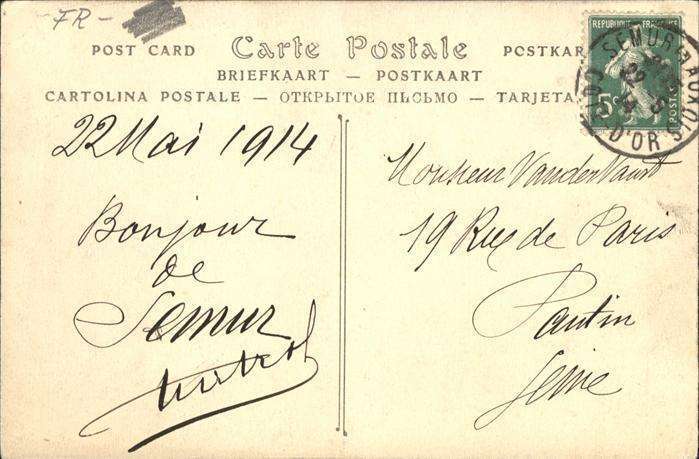 FR
POST CARD Carte Postale POSTKAR
BRIEFKAART — POSTKAART
CARTOLINA POSTALE — ОТКРЫТОЕ ПИСЬМО — TARJETA
REPUBLIQUE FRANÇAISE
5c
POSTES
SEMUR
COTE D'OR
22 Mai 1914
Bonjour
de
Semur
Monsieur VandenVaust
19 Rue de Paris
Pantin
Seine